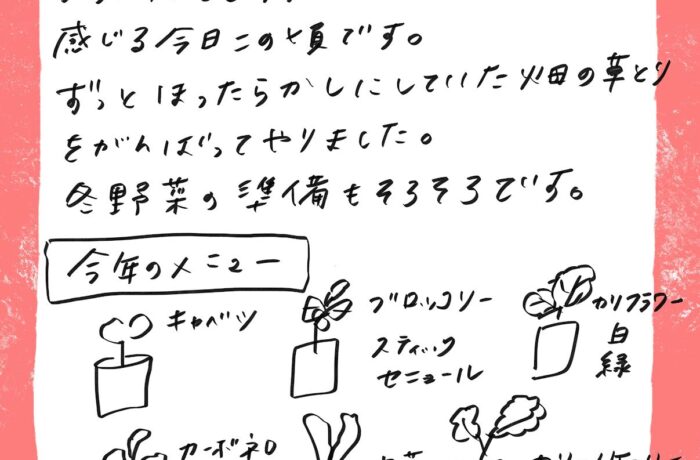 感じる今日この頃です。
ずっとほったらかしにしていた畑の草とり
をがんばってやりました。
冬野菜の準備もそろそろです。
今年のメニュー
キャベツ
ブロッコリー
スティック
セニョール
カリフラワー
白
緑
カーボネロ